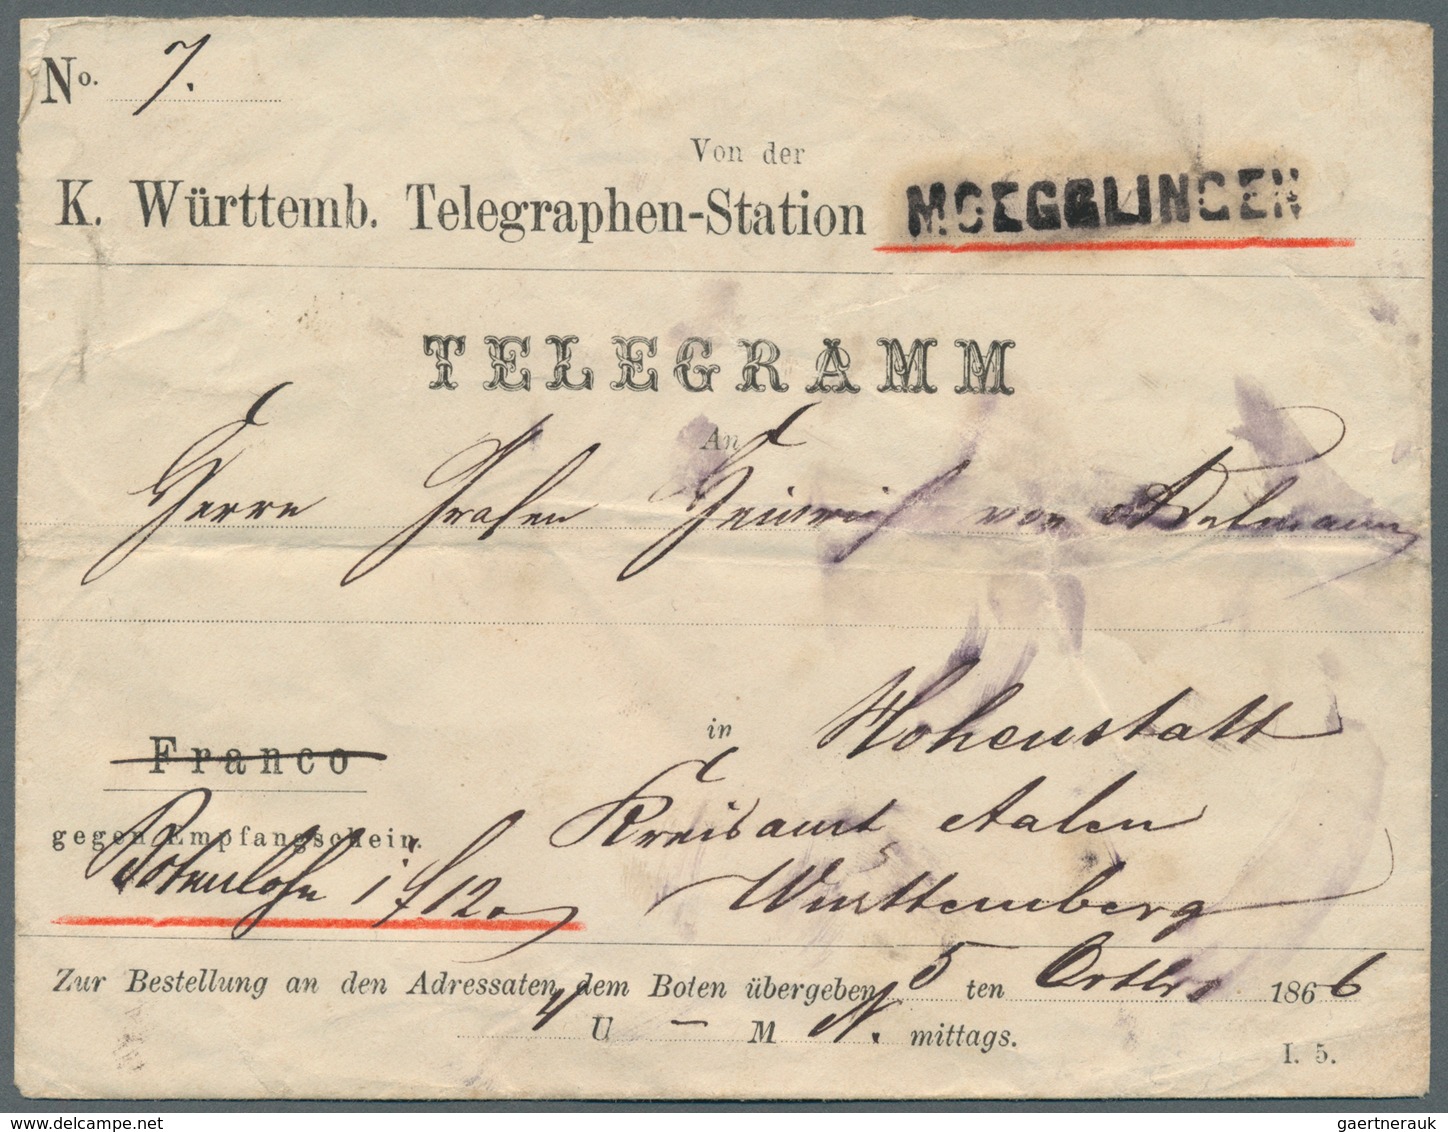 No. 7.
Von der
K. Württemb. Telegraphen-Station MOEGGLINGEN
TELEGRAMM
An
Herrn Grafen Heinrich von Adelmann
in Hohenstatt
Franco
Kreisamt Aalen
gegen Empfangschein.
Botenlohn 1 f 12
Württemberg
Zur Bestellung an den Adressaten dem Boten übergeben 5 ten Octbr 1866
4 U – M N. mittags.
I. 5.
gaertnerauk